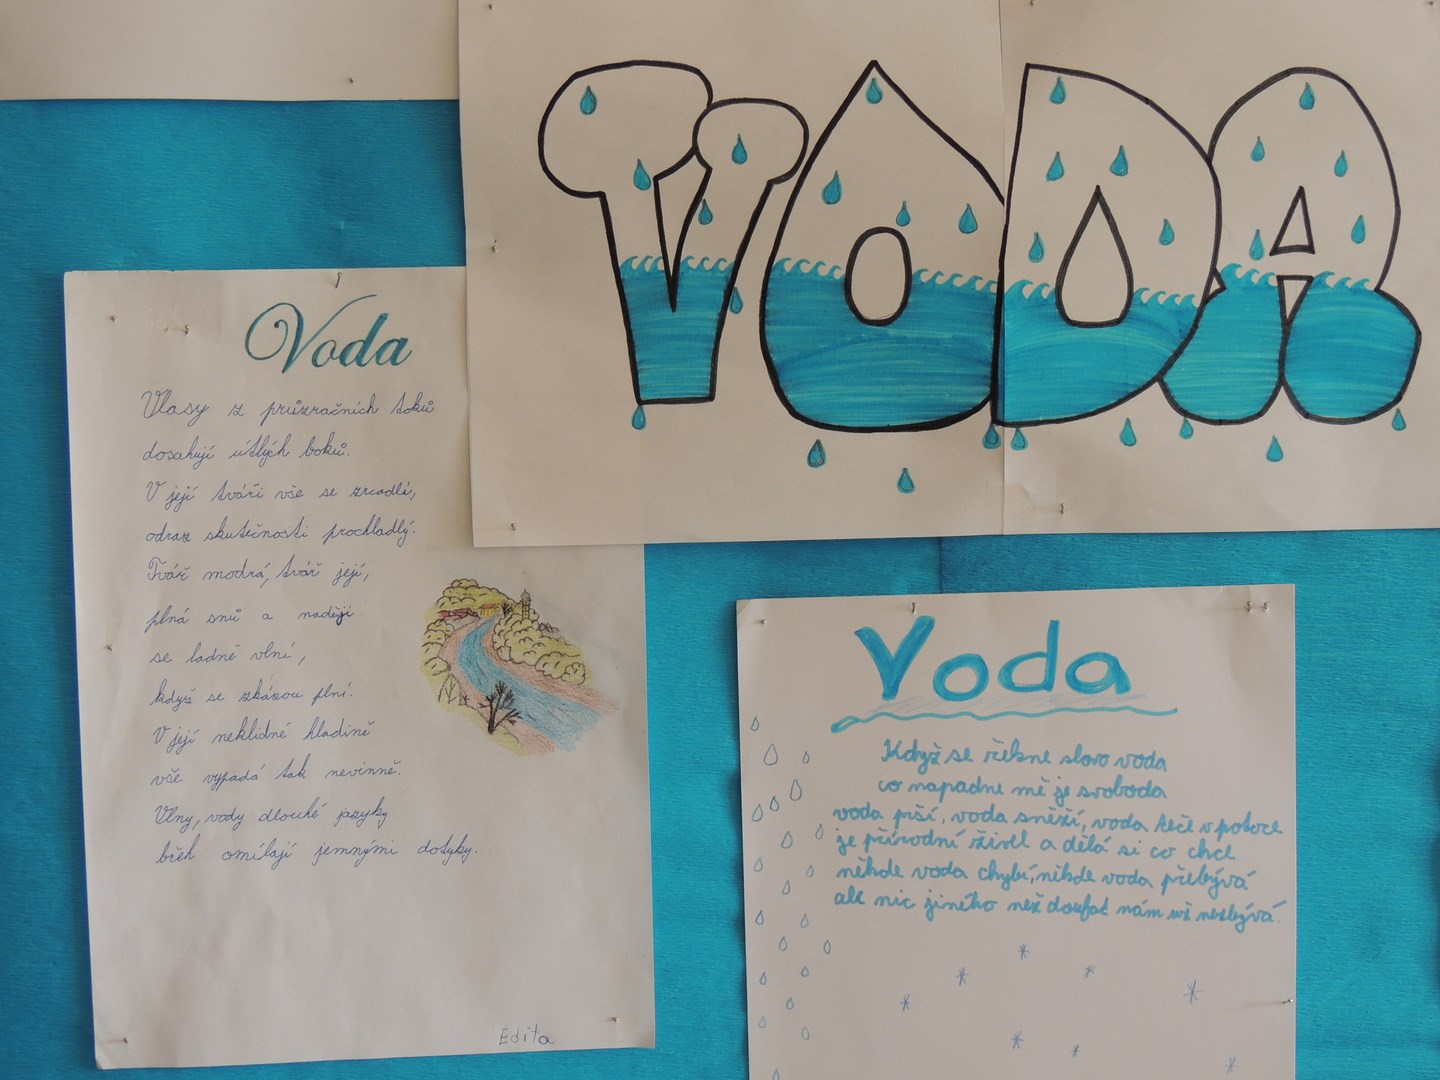 VODA
Voda
Vlasy z průzračních toků
dosahují útlých boků.
V její tváři vše se zrcadlí,
odraz skutečnosti prochladlý.
Tvář modrá, tvář její,
plná snů a naději
se ladně vlní,
když se zkázou plní.
V její neklidné hladině
vše vypadá tak nevinně.
Vlny, vody dlouhé jazyky
břeh omílají jemnými dotyky.
Edita
Voda
Když se řekne slovo voda
co napadne mě je svoboda
voda prší, voda sněží, voda teče v potoce
je přírodní živel a dělá si co chce
někde voda chybí, někde voda přebývá
ale nic jiného než doufat nám už nezbývá.